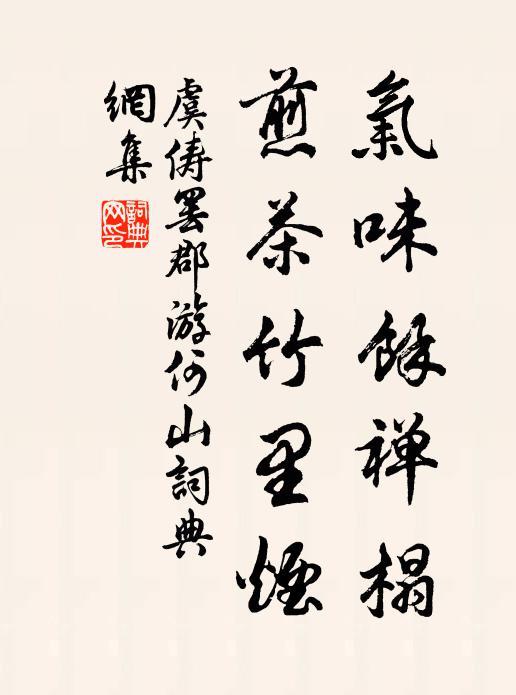 氣味餘禅榻
煎茶竹里煙
虞俦罢郡游何山詞典
網集
詞典網印